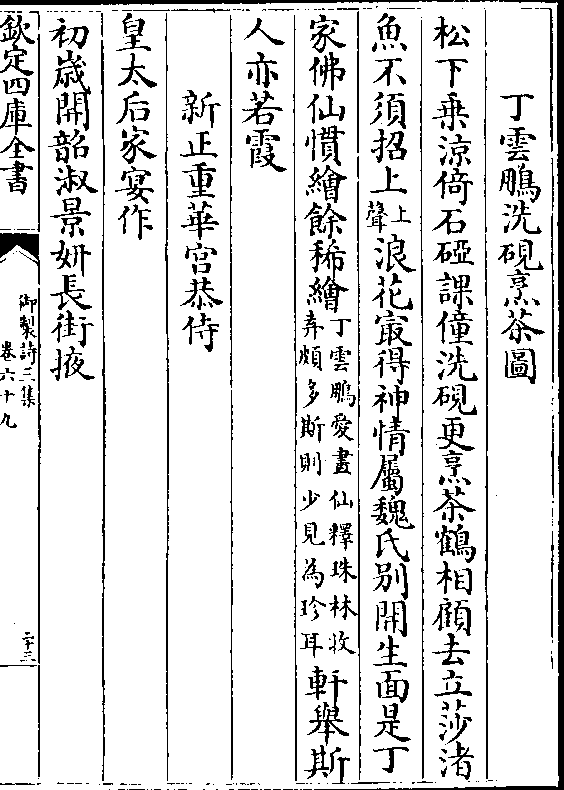 丁雲鵬洗硯烹茶圖
松下乗涼倚石磴課僮洗硯更烹茶鶴相顧去立莎渚
魚不須招上上聲浪花㝡得神情屬魏氏别開生面是丁
家佛仙慣繪餘稀繪丁雲鵬愛畫仙釋珠林收弆頗多斯則少見為珍耳軒舉斯
人亦若霞
新正重華宫恭侍
皇太后家宴作
初嵗開韶淑景妍長街掖
欽定四庫全書
御製詩三集
卷六十九
二十三